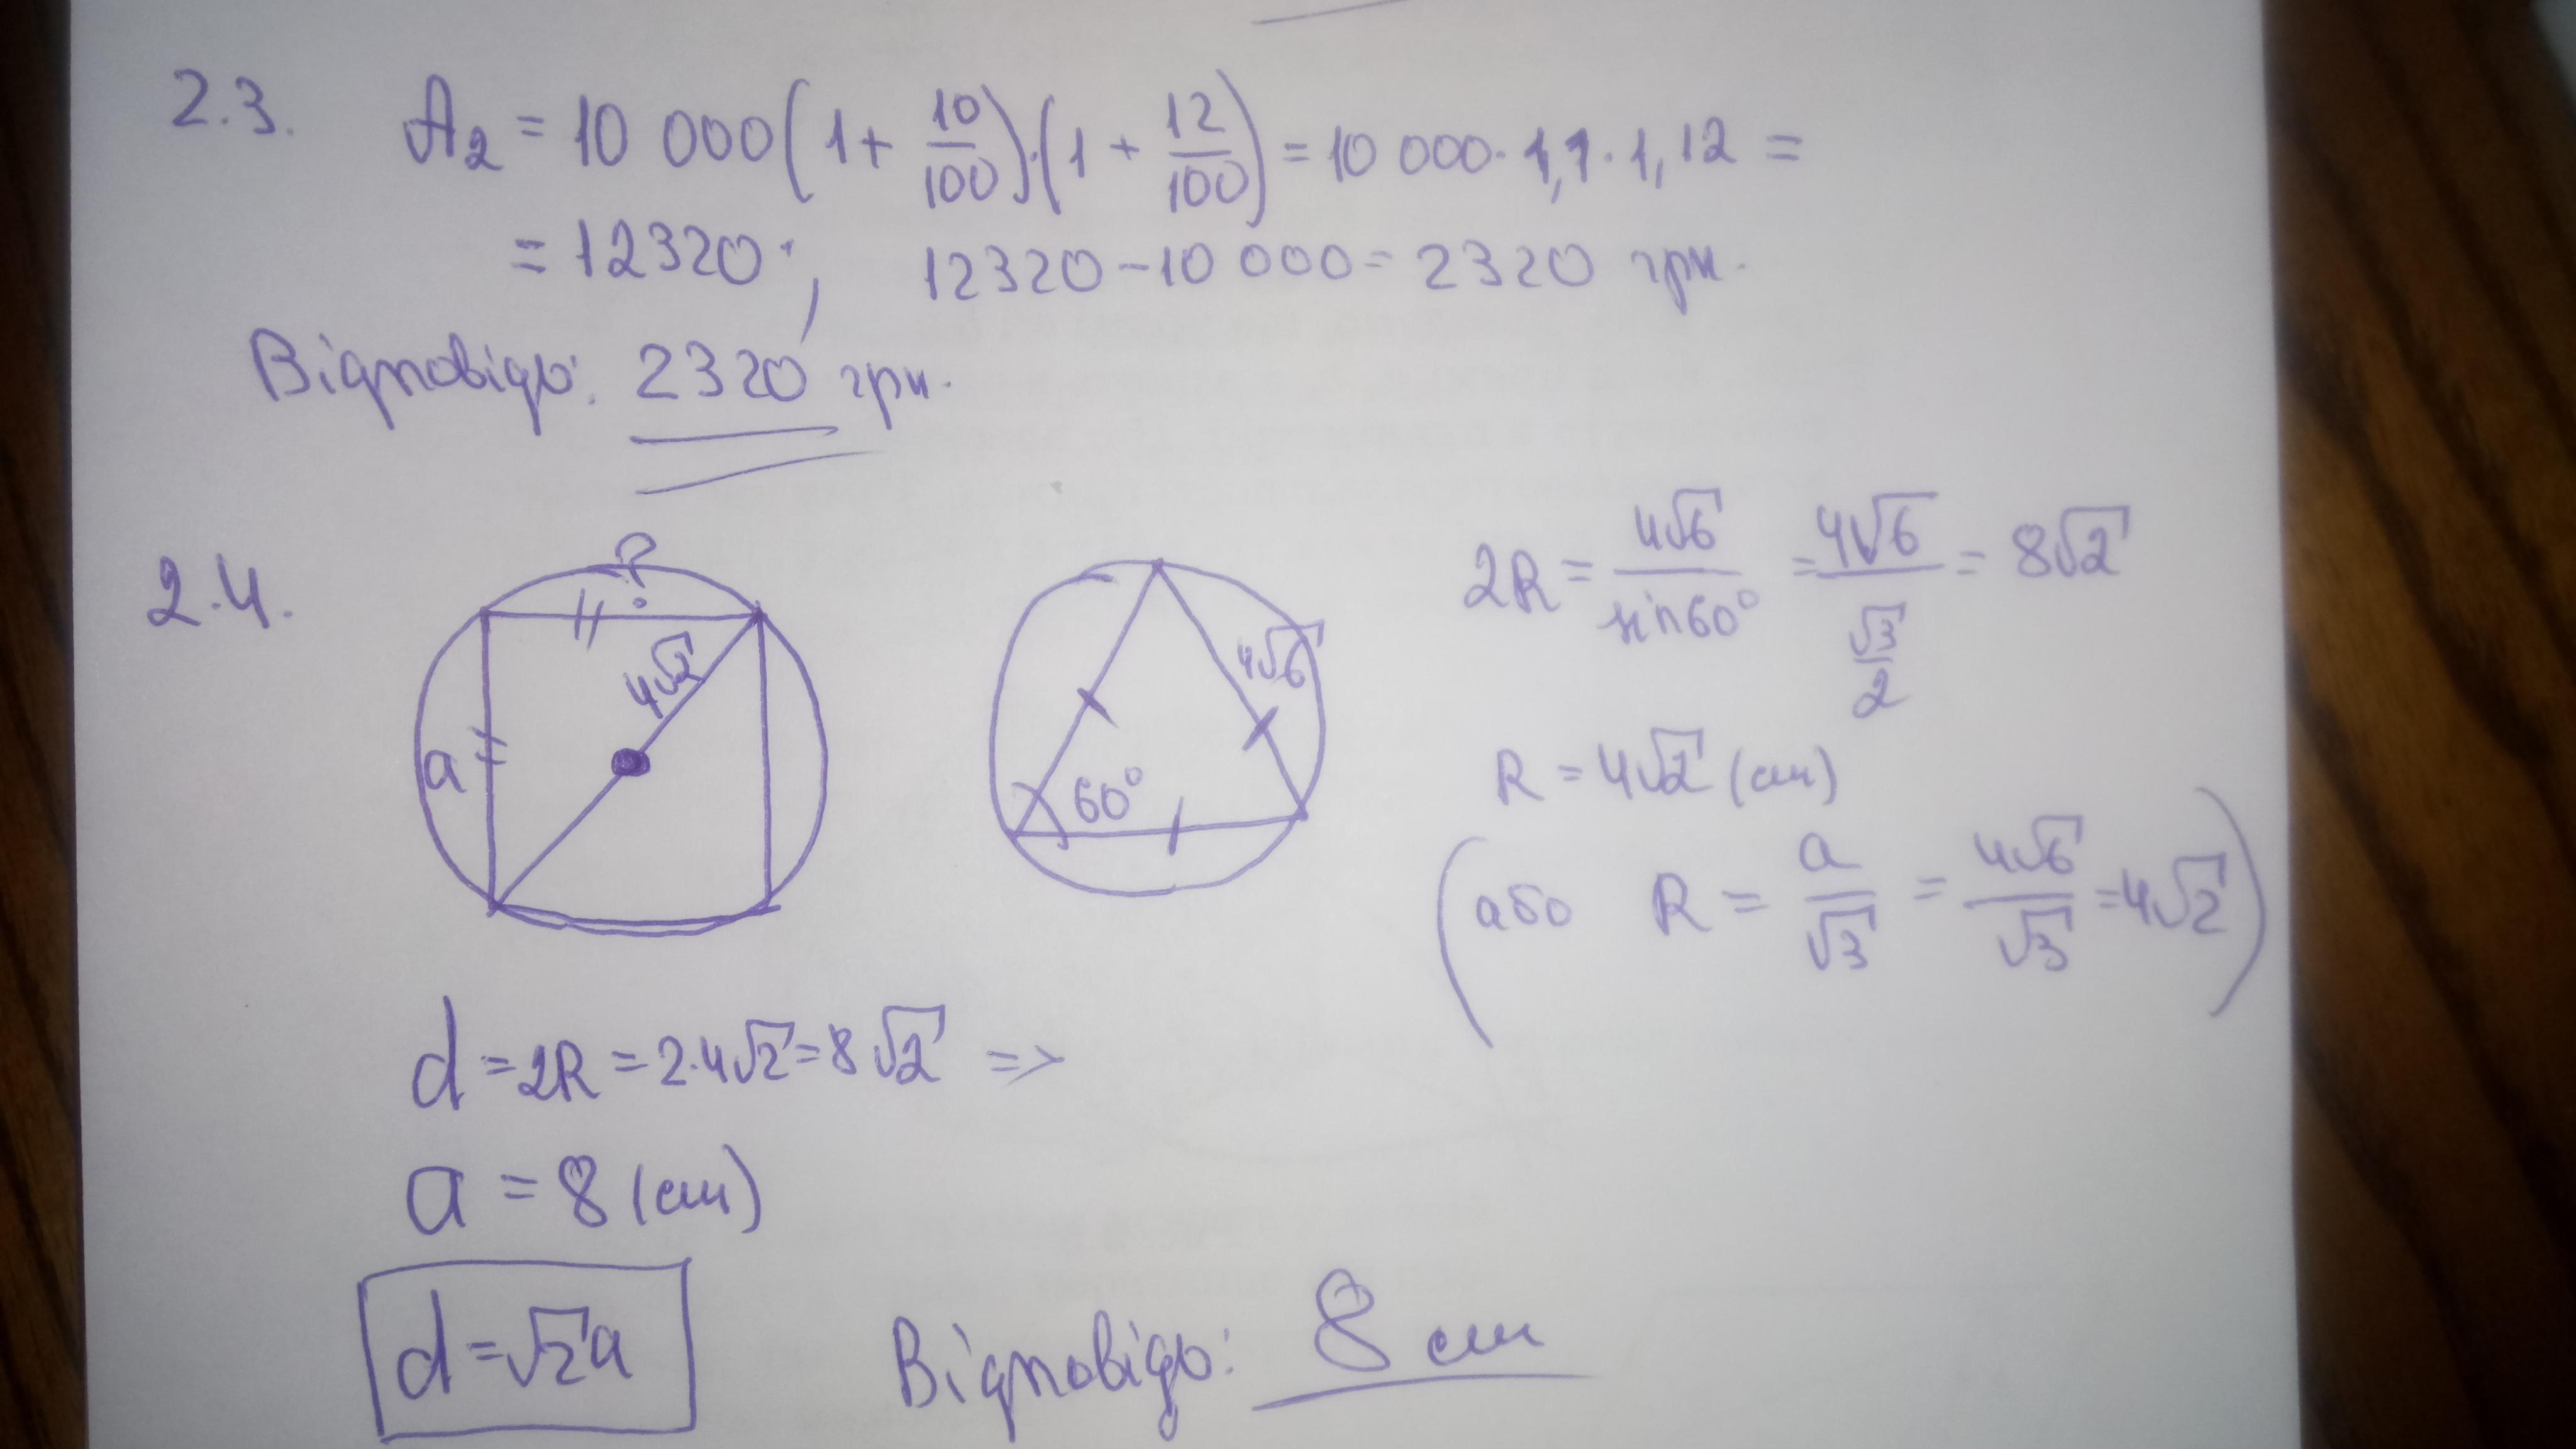 2.3. A₂ = 10 000(1 + 10/100)·(1 + 12/100) = 10 000 · 1,1 · 1,12 =
= 12320; 12320 − 10 000 = 2320 грн.
Відповідь: 2320 грн.
2.4.
?
4√2
a
4√6
60°
2R = 4√6/sin60° = 4√6/(√3/2) = 8√2
R = 4√2 (см)
(або R = a/√3 = 4√6/√3 = 4√2)
d = 2R = 2·4√2 = 8√2 =>
a = 8 (см)
d = √2a
Відповідь: 8 см